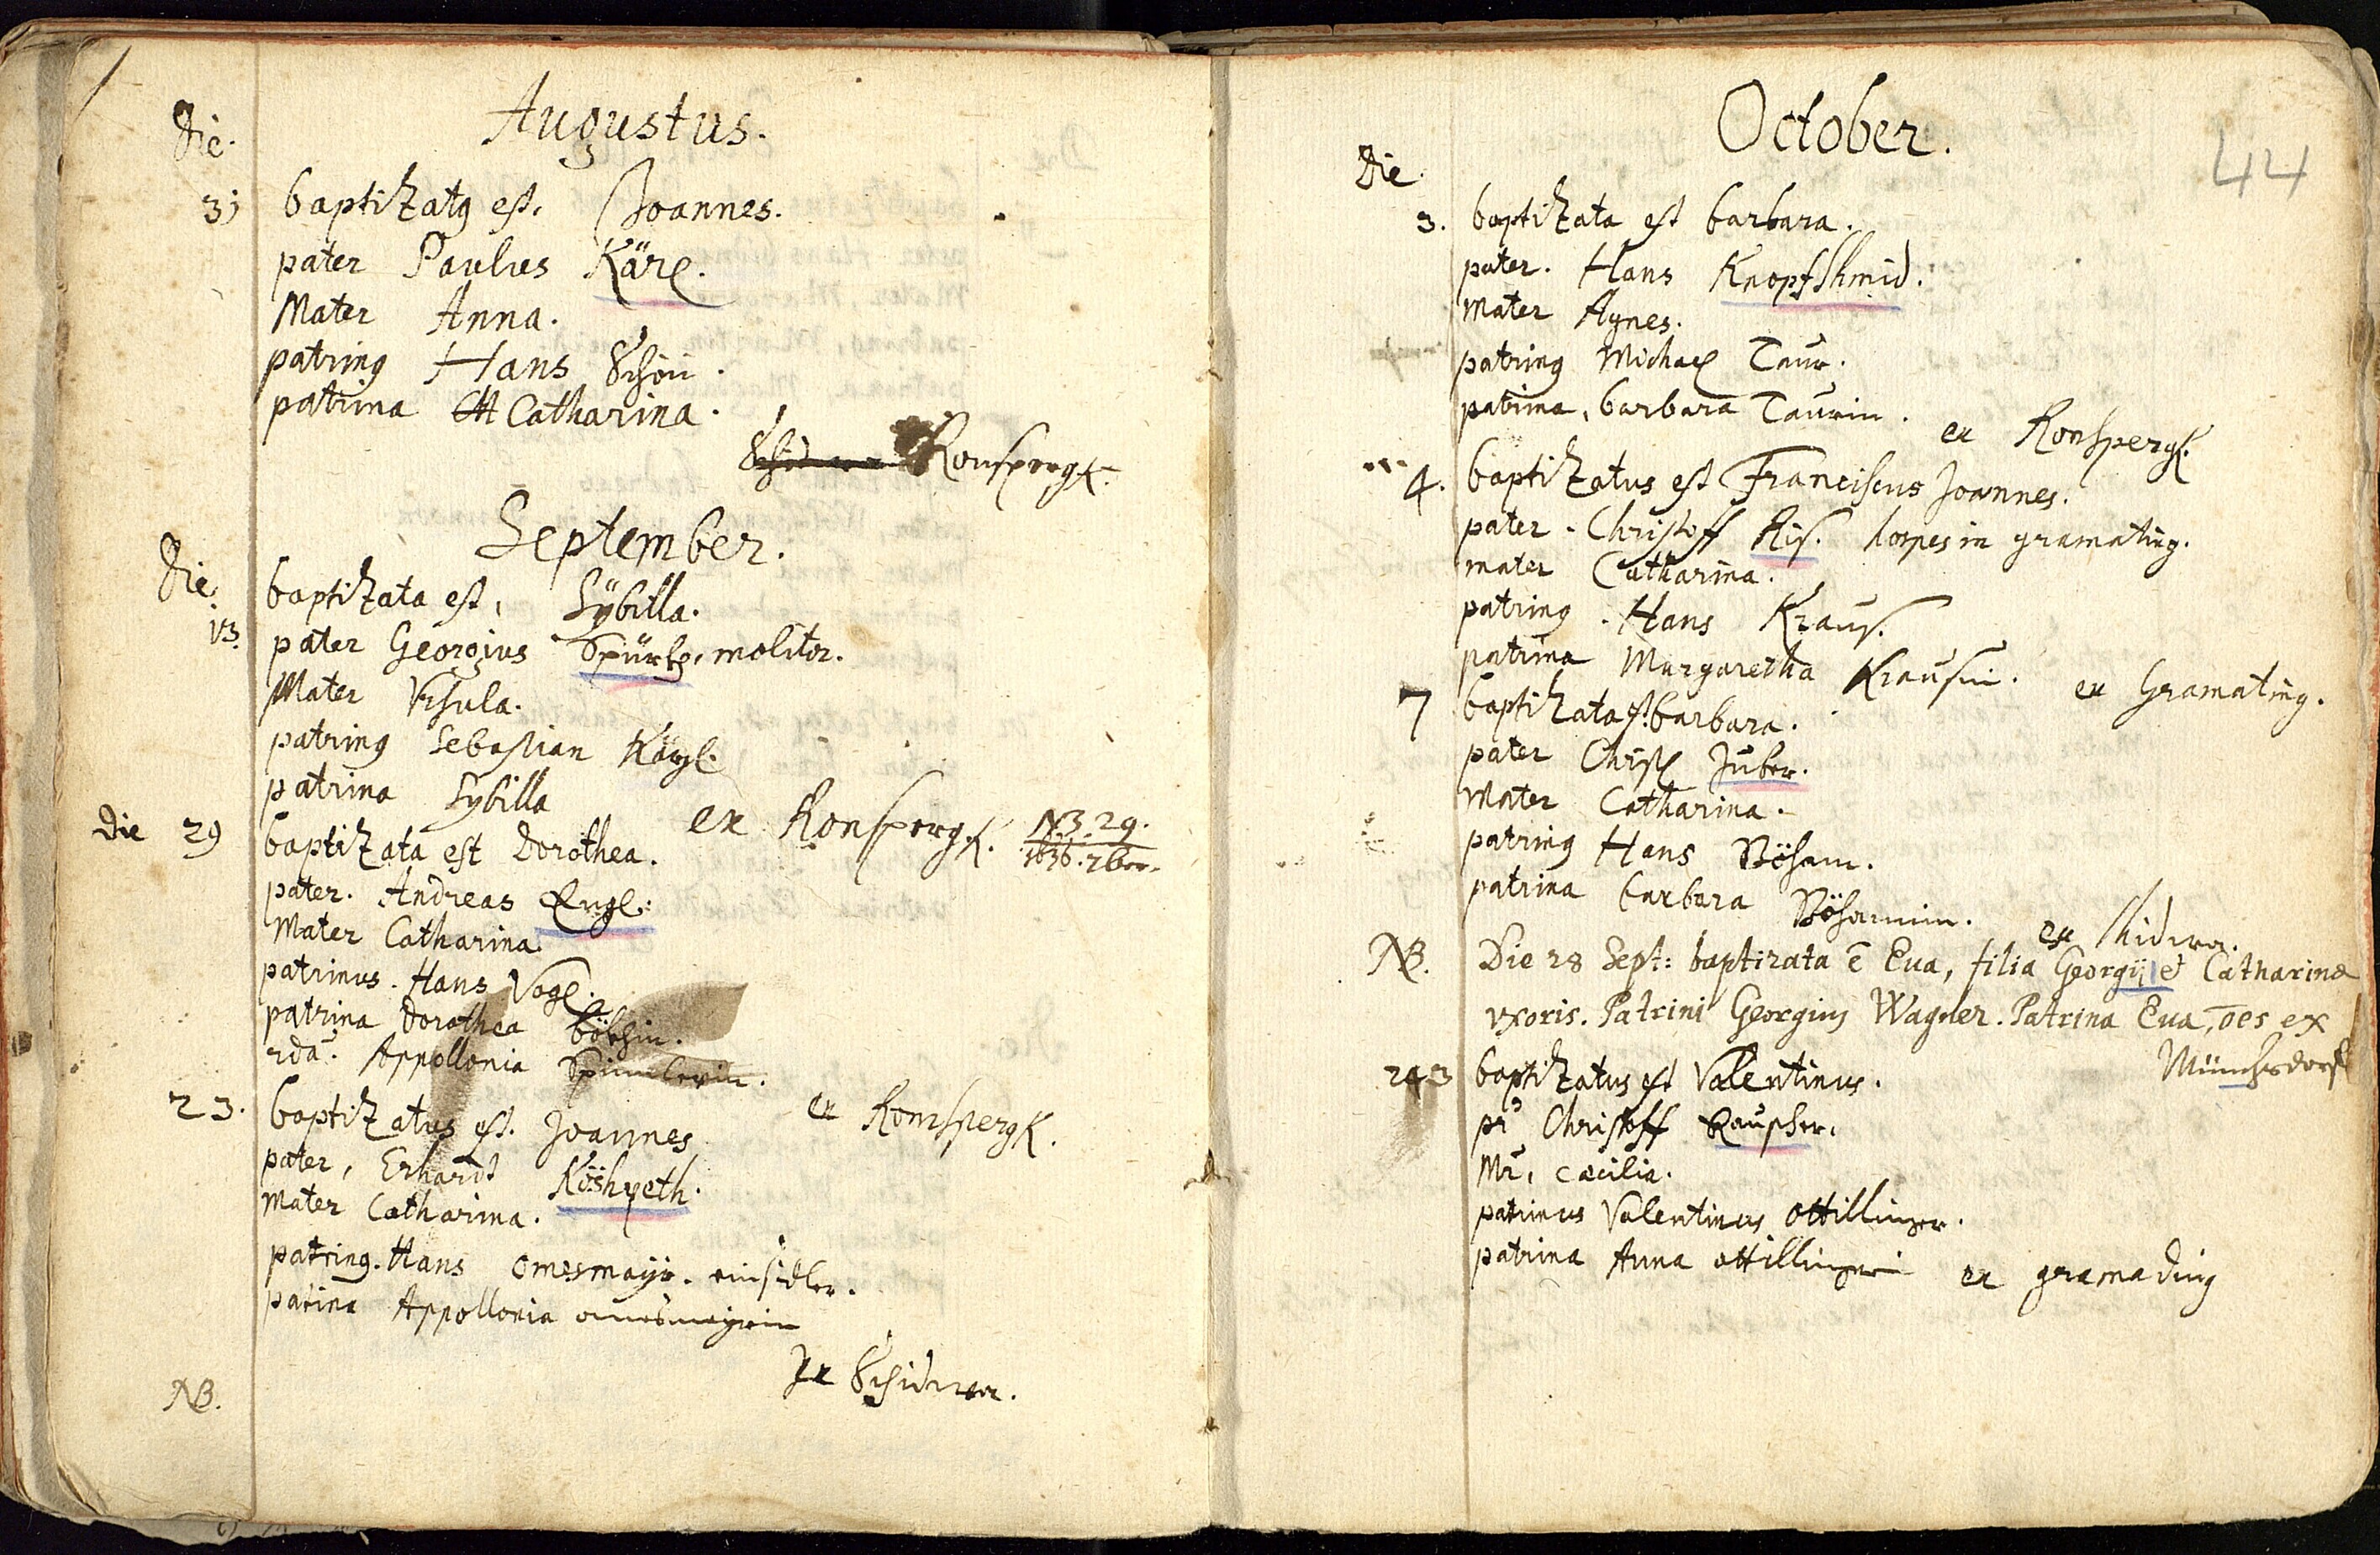 Augustus.
Die.
31 baptizatus est. Joannes.
pater Paulus Kärl.
Mater Anna.
patrinus Hans Schön.
patrina Catharina.
Ronspergk.
September.
Die.
13. baptizata est, Sÿbilla.
pater Georgius Spürkh, molitor.
Mater Vrsula.
patrinus Sebastian Kärgl.
patrina Sybilla
ex Ronspergk.
NB. 29.
1636. 7ber.
Die 29 baptizata est Dorothea.
pater. Andreas Engl:
Mater Catharina.
patrinus. Hans Vogl.
patrina Dorothea
2da. Appollonia
ex Ronspergk.
23. baptizatus est. Joannes
pater, Erhardt Köshyeth.
Mater Catharina.
patrinus. Hans Omesmayr. einsidler.
patrina Appollonia omesmayrin
Ex Schidrra.
NB.
44
October.
Die.
3. baptizata est barbara.
pater. Hans Knopfshmid.
Mater Agnes.
patrinus Michael Taur.
patrina, barbara Taurin.
ex Ronspergk.
4. baptizatus est Franciscus Joannes.
pater. Christoff Ris. hospes in gramating.
mater Catharina.
patrinus. Hans Kraus.
patrina Margaretha Krausin.
ex Gramating.
7 baptizata est barbara.
pater Christl Juber.
Mater Catharina.
patrinus Hans Böham.
patrina barbara Böhamin.
ex
NB. Die 28 Sept: baptizata ē Eua, filia Georgij et Catharinæ
vxoris. Patrini Georgius Wagner. Patrina Eua, oēs ex
Münchsdorf
243 baptizatus est Valentinus.
pr Christoff Raupher,
Mr, cæcilia.
patrinus Valentinus ottillinger.
patrina Anna ottillingerin
ex gramading